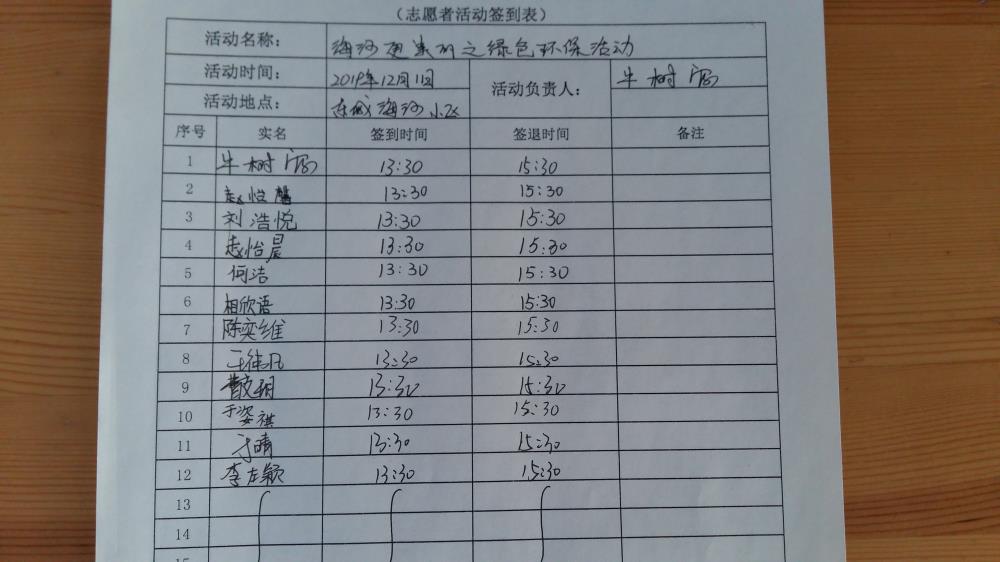 （志愿者活动签到表）
活动名称： 海河更美丽之绿色环保活动
活动时间： 2019年12月11日 活动负责人： 牛树
活动地点： 东城海河小区
序号 实名 签到时间 签退时间 备注
1 牛树 13:30 15:30
2 赵怡馨 13:30 15:30
3 刘浩悦 13:30 15:30
4 赵怡晨 13:30 15:30
5 何洁 13:30 15:30
6 相欣语 13:30 15:30
7 陈奕维 13:30 15:30
8 13:30 15:30
9 13:30 15:30
10 于姿祺 13:30 15:30
11 于晴 13:30 15:30
12 李左颖 13:30 15:30
13
14
15